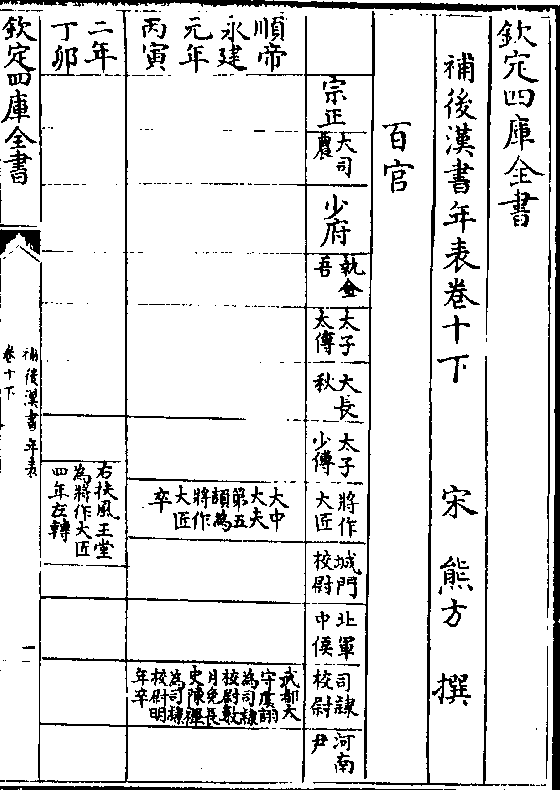 欽定四庫全書
補後漢書年表卷十下
宋 熊方 撰
百官
宗正
大司
農
少府
執金
吾
太子
太傅
大長
秋
太子
少傅
將作
大匠
城門
校尉
北軍
中侯
司隷
校尉
河南
尹
順帝
永建
元年
丙寅
大中
大夫
第五
頡為
將作
大匠
卒
武都太
守虞詡
為司隷
校尉數
月免長
史陳禪
為司隷
校尉明
年卒
二年
丁卯
右扶風王堂
為將作大匠
四年左轉
欽定四庫全書
補後漢書年表
卷十下
一